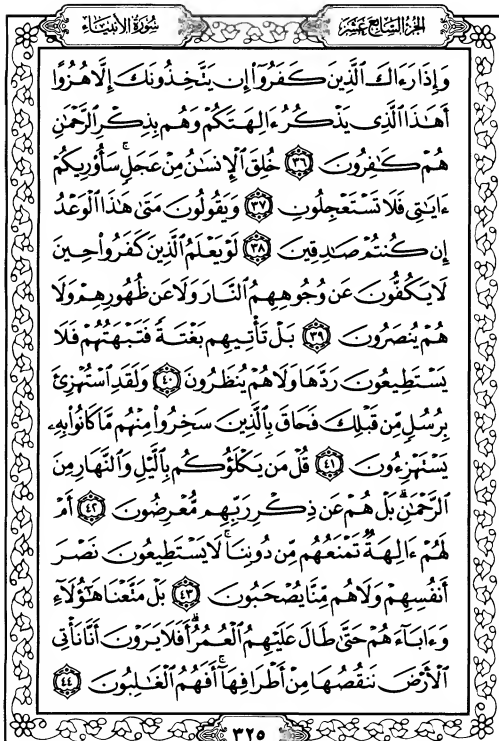 الجزء السابع عشر
سورة الأنبياء
وَإِذَا رَءَاكَ ٱلَّذِينَ كَفَرُوٓاْ إِن يَتَّخِذُونَكَ إِلَّا هُزُوًا
أَهَٰذَا ٱلَّذِى يَذْكُرُ ءَالِهَتَكُمْ وَهُم بِذِكْرِ ٱلرَّحْمَٰنِ
هُمْ كَٰفِرُونَ ٣٦ خُلِقَ ٱلْإِنسَٰنُ مِنْ عَجَلٍ ۚ سَأُوْرِيكُمْ
ءَايَٰتِى فَلَا تَسْتَعْجِلُونِ ٣٧ وَيَقُولُونَ مَتَىٰ هَٰذَا ٱلْوَعْدُ
إِن كُنتُمْ صَٰدِقِينَ ٣٨ لَوْ يَعْلَمُ ٱلَّذِينَ كَفَرُواْ حِينَ
لَا يَكُفُّونَ عَن وُجُوهِهِمُ ٱلنَّارَ وَلَا عَن ظُهُورِهِمْ وَلَا
هُمْ يُنصَرُونَ ٣٩ بَلْ تَأْتِيهِم بَغْتَةً فَتَبْهَتُهُمْ فَلَا
يَسْتَطِيعُونَ رَدَّهَا وَلَا هُمْ يُنظَرُونَ ٤٠ وَلَقَدِ ٱسْتُهْزِئَ
بِرُسُلٍ مِّن قَبْلِكَ فَحَاقَ بِٱلَّذِينَ سَخِرُواْ مِنْهُم مَّا كَانُواْ بِهِۦ
يَسْتَهْزِءُونَ ٤١ قُلْ مَن يَكْلَؤُكُم بِٱلَّيْلِ وَٱلنَّهَارِ مِنَ
ٱلرَّحْمَٰنِ ۗ بَلْ هُمْ عَن ذِكْرِ رَبِّهِم مُّعْرِضُونَ ٤٢ أَمْ
لَهُمْ ءَالِهَةٌ تَمْنَعُهُم مِّن دُونِنَا ۚ لَا يَسْتَطِيعُونَ نَصْرَ
أَنفُسِهِمْ وَلَا هُم مِّنَّا يُصْحَبُونَ ٤٣ بَلْ مَتَّعْنَا هَٰٓؤُلَآءِ
وَءَابَآءَهُمْ حَتَّىٰ طَالَ عَلَيْهِمُ ٱلْعُمُرُ ۗ أَفَلَا يَرَوْنَ أَنَّا نَأْتِى
ٱلْأَرْضَ نَنقُصُهَا مِنْ أَطْرَافِهَآ ۚ أَفَهُمُ ٱلْغَٰلِبُونَ ٤٤
٣٢٥